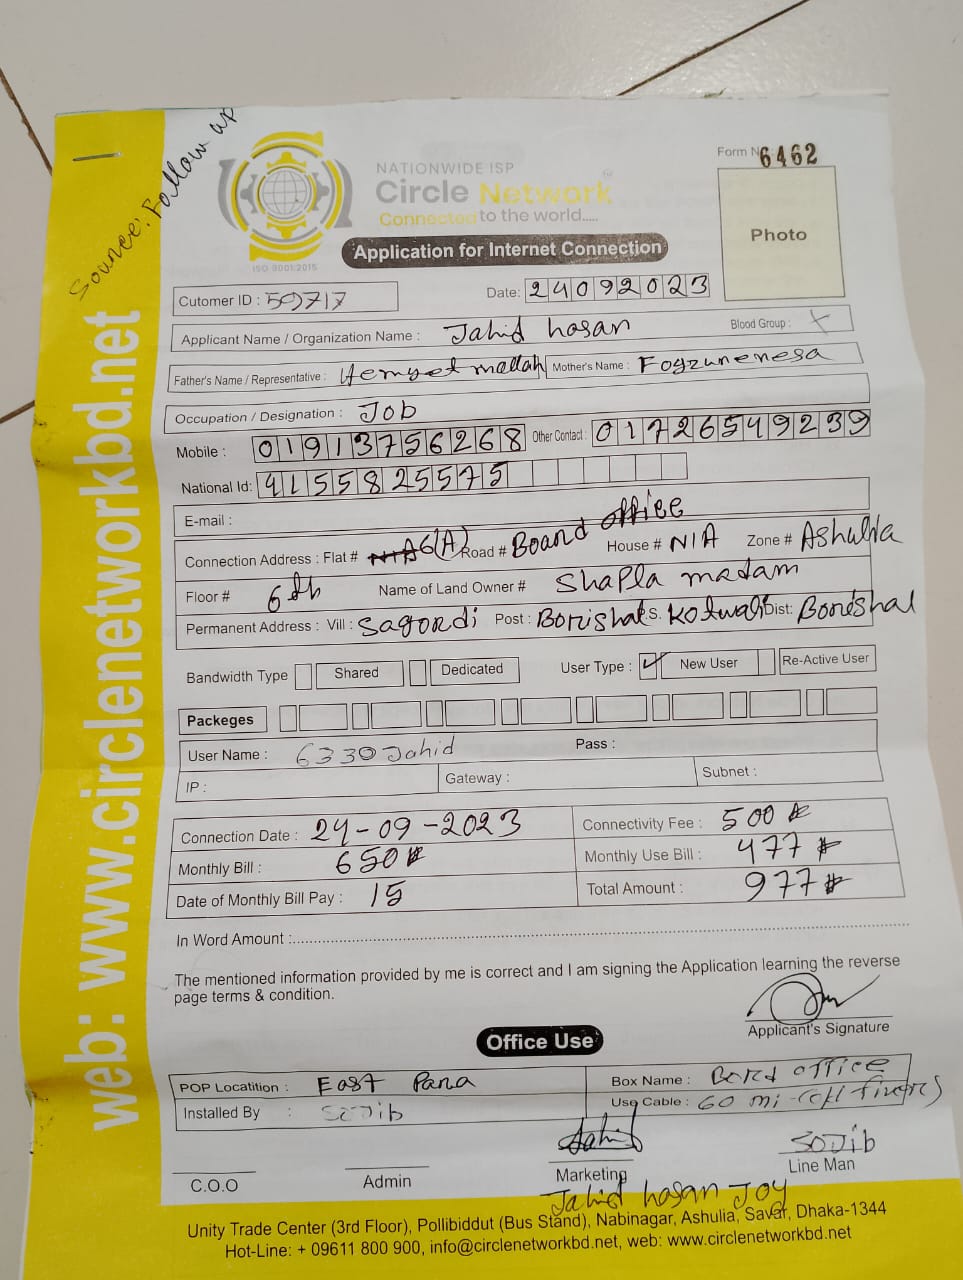 Source: Follow up
web: www.circlenetworkbd.net
NATIONWIDE ISP
Circle Network
Connected to the world.....
ISO 9001:2015
Form No 6462
Photo
Application for Internet Connection
Cutomer ID : 59717 Date: 24092023
Applicant Name / Organization Name : Jahid hasan Blood Group : X
Father's Name / Representative : Hemyet mollah Mother's Name : Foyzunenesa
Occupation / Designation : Job
Mobile : 01913756268 Other Contact : 01726549239
National Id: 4155825575
E-mail :
Connection Address : Flat # N/A 6(A) Road # Board office House # N/A Zone # Ashulia
Floor # 6th Name of Land Owner # Shapla madam
Permanent Address : Vill : Sagordi Post : Borishal P.S. Kotwali Dist: Borishal
Bandwidth Type Shared Dedicated User Type : ✓ New User Re-Active User
Packeges
User Name : 6330Jahid Pass :
IP : Gateway : Subnet :
Connection Date : 24-09-2023 Connectivity Fee : 500
Monthly Bill : 650 Monthly Use Bill : 477
Date of Monthly Bill Pay : 15 Total Amount : 977
In Word Amount :
The mentioned information provided by me is correct and I am signing the Application learning the reverse
page terms & condition.
Applicant's Signature
Office Use
POP Locatition : East Para Box Name : Bord office
Installed By : Sojib Use Cable : 60 mi
Jahid Sojib
C.O.O Admin Marketing Line Man
Jahid hasan Joy
Unity Trade Center (3rd Floor), Pollibiddut (Bus Stand), Nabinagar, Ashulia, Savar, Dhaka-1344
Hot-Line: + 09611 800 900, info@circlenetworkbd.net, web: www.circlenetworkbd.net